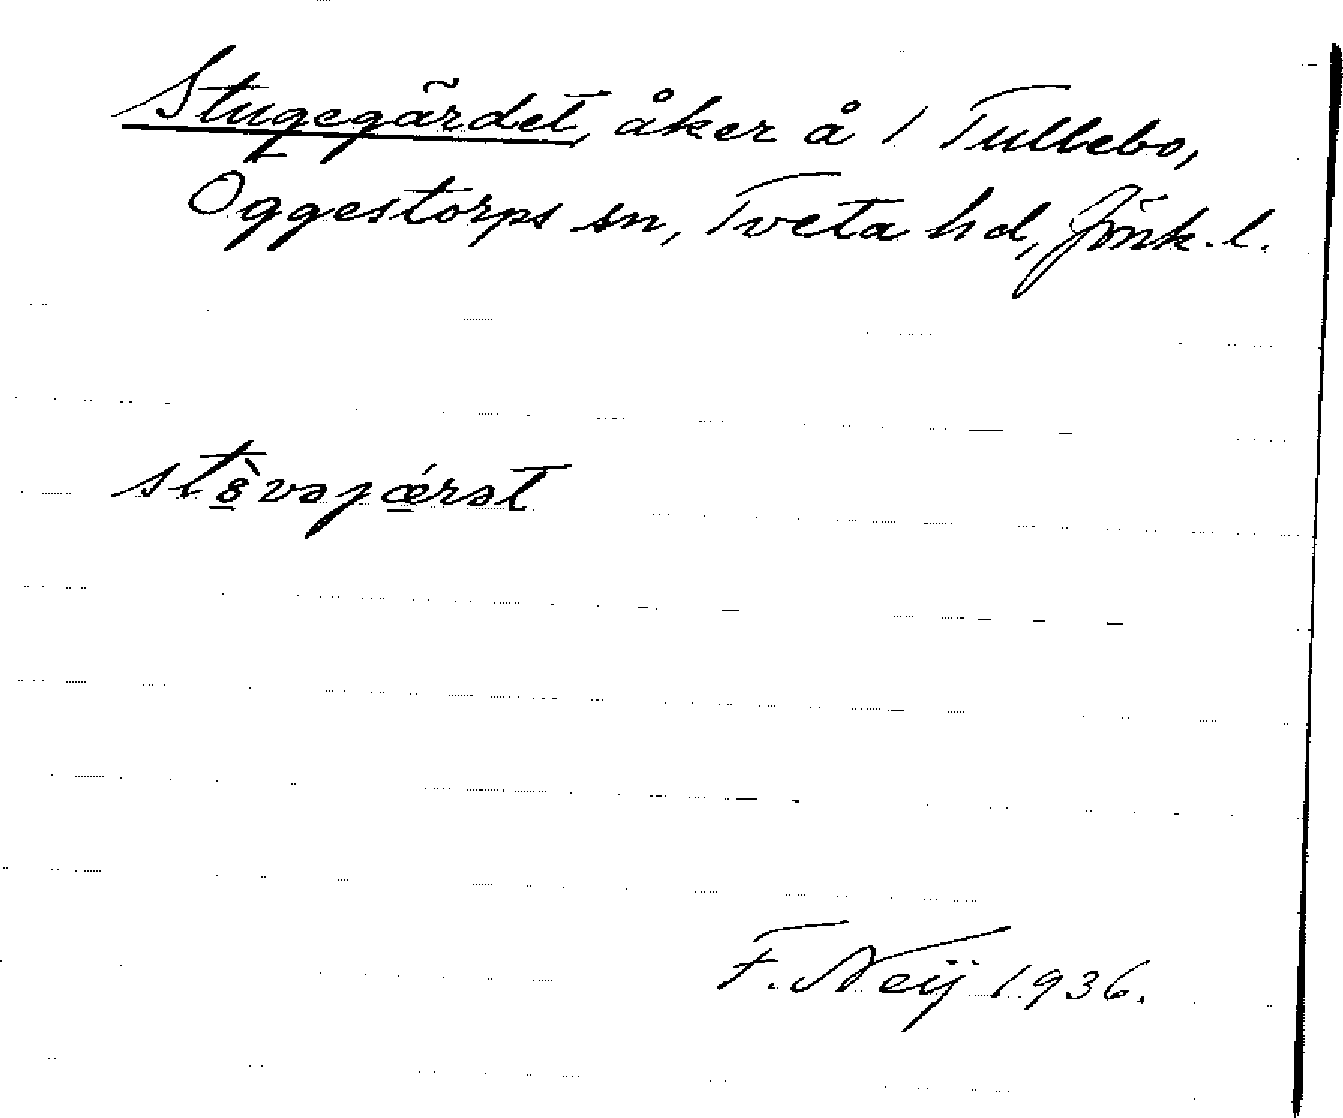 Stugegärdet, åker å 1 Tullebo,
Öggestorps sn, Tveta hd, Jönk. l.
st8̱̀vəjǽ̱rət
F. Neij 1936.